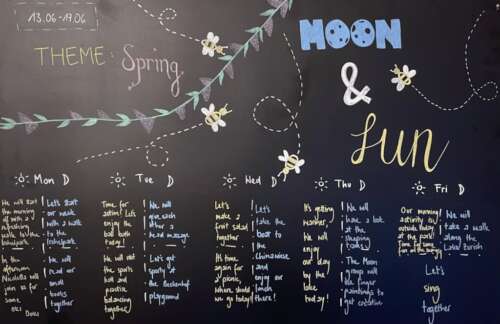 13.06-19.06
THEME: Spring
MOON
&
Sun
Mon D
We will start
the morning
off with a
refreshing
walk to the
In the
afternoon
will
join us for
some
Let's start
our week
with a walk
to the
We will
read our
small
books
together
Tue D
Time for
action! Let's
enjoy the
today!
We will visit
the sports
hall and
practice
balancing
together
We will
give each
other a
head massage
Let's get
sporty at
the
playground
Wed D
Let's
make a
fruit salad
together
It's time
again for
a picnic,
where should
we go today?
Let's
take the
boat to
the
Chinawiese
and
enjoy our
lunch
there!
Thu D
It's getting
warmer,
We will
enjoy
our day
by the
lake
today!
We will
have a look
at the
shipping
today
The Moon
group will
use finger
paintings to
get creative
Fri D
Our morning
activity is
outside today
at the park!
Time for some
We will
take a
walk
along the
Let's
sing
together